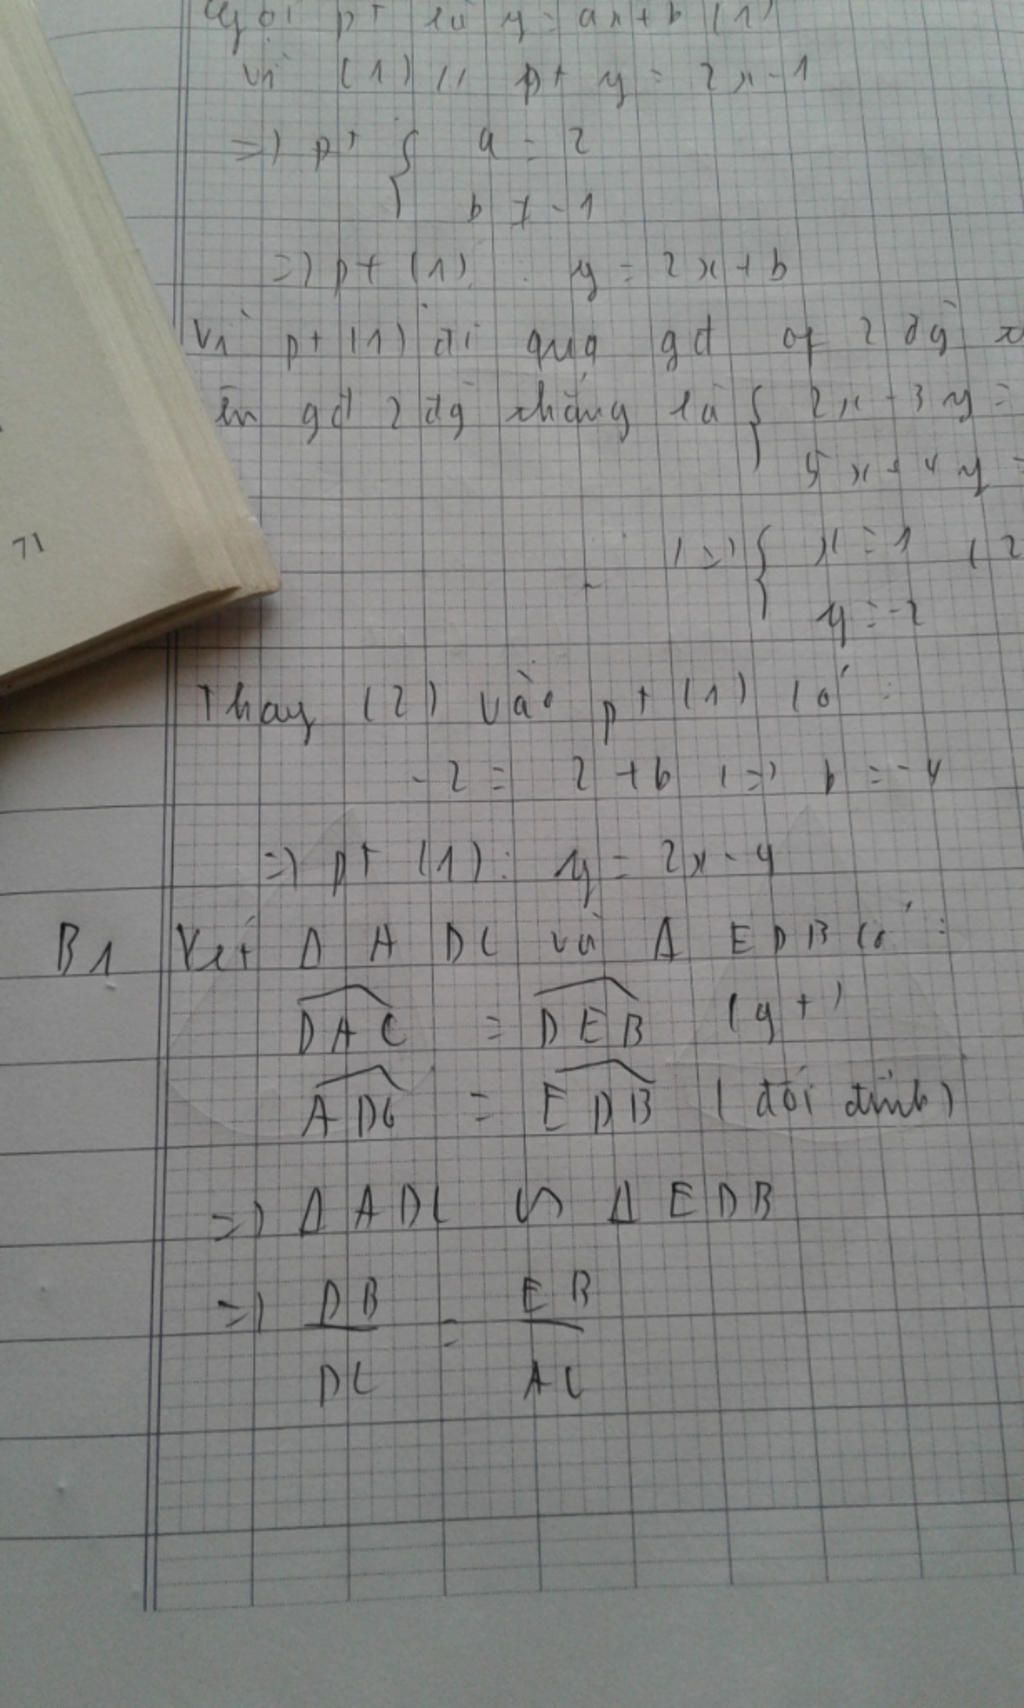 Gọi pt là y = ax + b (1)
vì (1) // pt y = 2x - 1
=> pt { a = 2
b ≠ -1
=> pt (1) : y = 2x + b
Vì pt (1) đi qua gđ of 2 đg
gđ 2 đg thẳng là { 2x + 3y =
5x + 4y =
71
<=> { x = 1 (2
y = -2
Thay (2) vào pt (1) có :
-2 = 2 + b <=> b = -4
=> pt (1) : y = 2x - 4
B1 Xét Δ ADC và Δ EDB có :
DAC = DEB (gt)
ADC = EDB (đối đỉnh)
=> Δ ADC ∽ Δ EDB
=> DB/DC = EB/AC